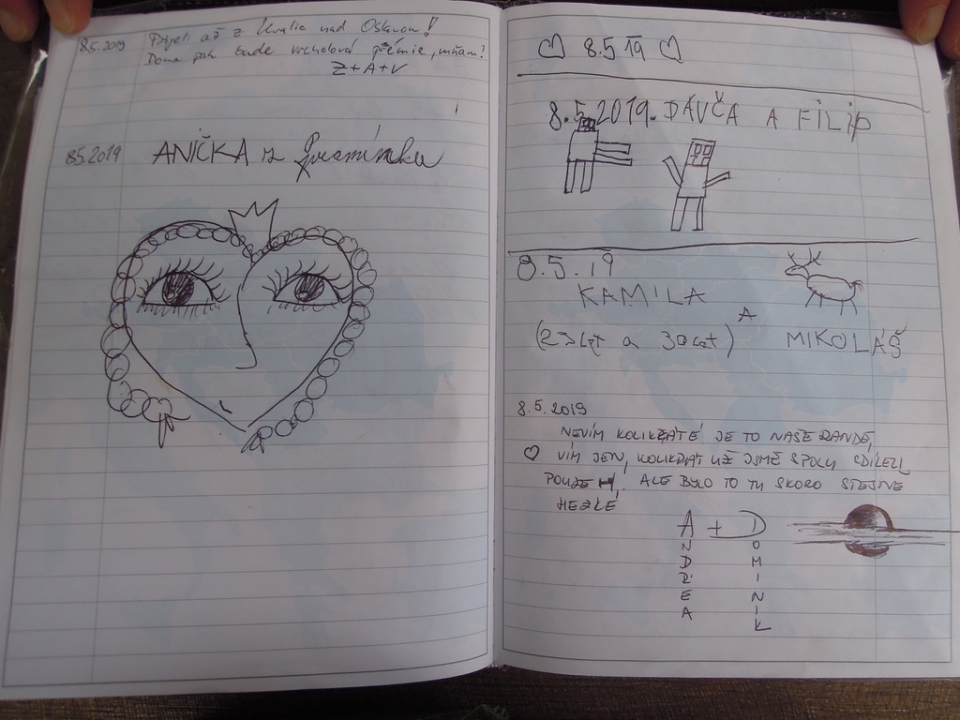 8.5.2019
až z nad Oskavou!
Doma pak bude vrcholová prémie, mňam!
Z+A+V
8.5.2019 ANIČKA z Pramínku
8.5 19
8.5.2019. DAVČA A FILIP
8.5.19
KAMILA
A
(27 let a 30 let) MIKOLÁŠ
8.5.2019
NEVÍM KOLIKÁTÉ JE TO NAŠE RANDE,
VÍM JEN, KOLIKRÁT UŽ JSME SPOLU SDÍLELI
ALE BYLO TO TU SKORO STEJNĚ
HEZKÉ
A + D
NDREA
OMINIK